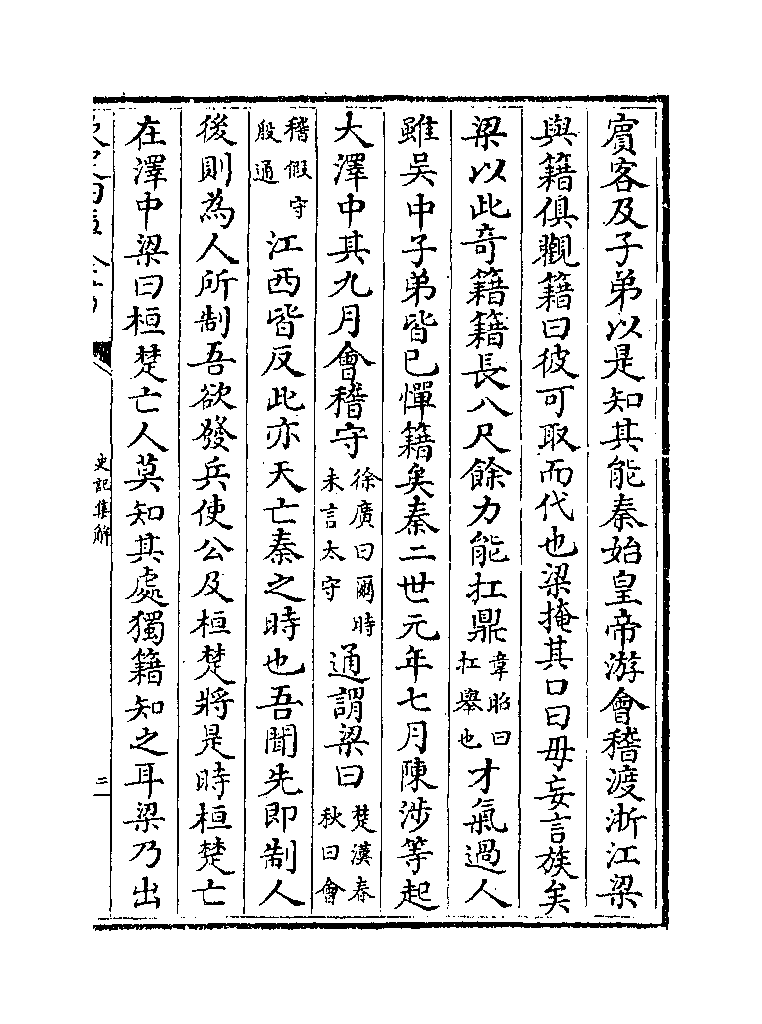 賔客及子弟以是知其能秦始皇帝游會稽渡浙江梁
與籍俱觀籍曰彼可取而代也梁掩其口曰毋妄言族矣
梁以此竒籍籍長八尺餘力能扛鼎韋昭曰扛舉也才氣過人
雖吳中子弟皆已憚籍矣秦二世元年七月陳涉等起
大澤中其九月會稽守徐廣曰爾時未言太守通謂梁曰楚漢春秋曰會
稽假守殷通江西皆反此亦天亡秦之時也吾聞先即制人
後則為人所制吾欲發兵使公及桓楚將是時桓楚亡
在澤中梁曰桓楚亡人莫知其處獨籍知之耳梁乃出
史記集解
三